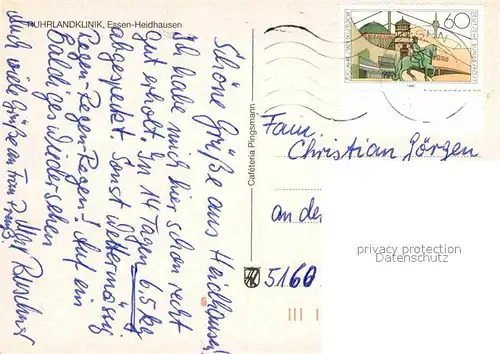 RUHRLANDKLINIK, Essen-Heidhausen
Schöne Grüße aus Heidhausen!
Ich habe mich hier schon recht
gut erholt. In 14 Tagen 6,5 kg
abgespeckt. Sonst Wettermässig
Regen-Regen-Regen! Auf ein
Baldiges Wiedersehen
Auch viele Grüße an Frau
Cafeteria Plogsmann
60
Fam.
Christian Görgen
an der
5160
privacy protection
Datenschutz